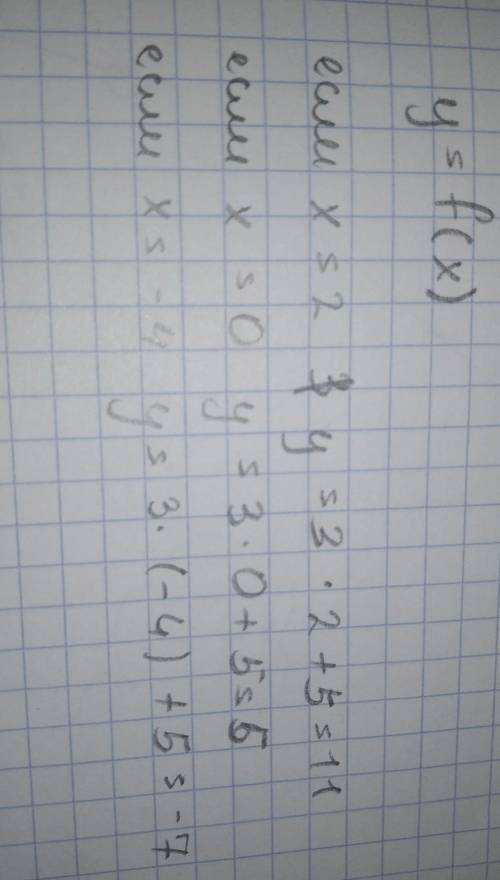 y = f(x)
если x = 2 y = 3 · 2 + 5 = 11
если x = 0 y = 3 · 0 + 5 = 5
если x = -4 y = 3 · (-4) + 5 = -7